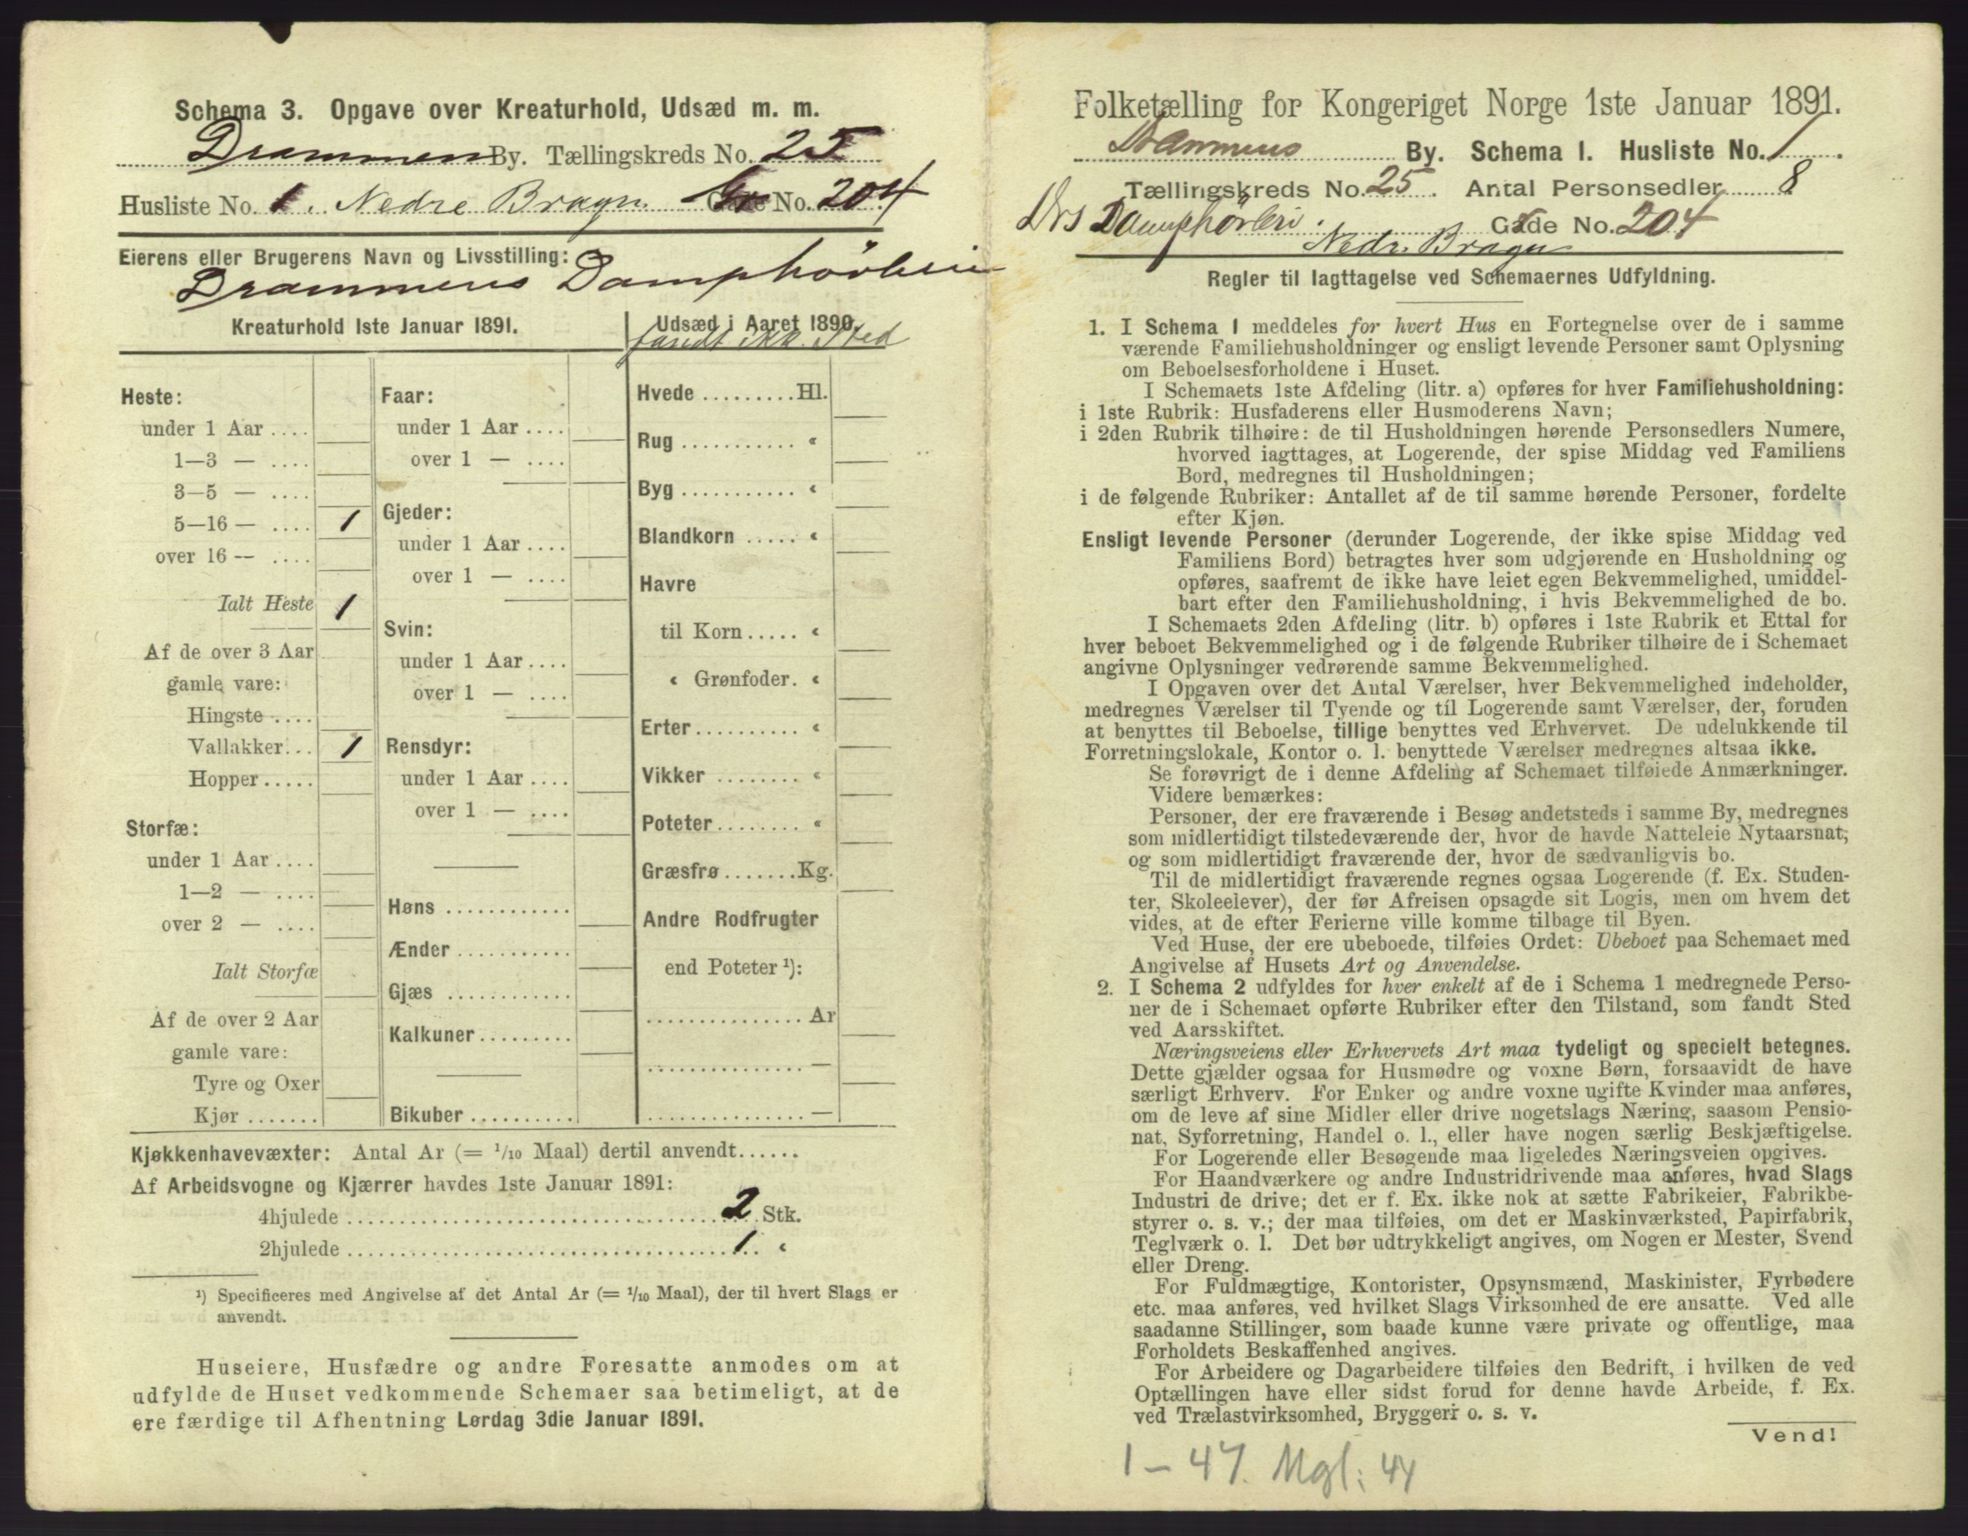 Schema 3. Opgave over Kreaturhold, Udsæd m. m.
Drammens By. Tællingskreds No. 25
Husliste No. 1. Nedre Bragn. Gade No. 204
Eierens eller Brugerens Navn og Livsstilling:
Drammens Damphörleri
Kreaturhold 1ste Januar 1891.
Heste:
under 1 Aar ....
1—3 — ....
3—5 — ....
5—16 — .... 1
over 16 — ....
Ialt Heste 1
Af de over 3 Aar
gamle vare:
Hingste ....
Vallakker... 1
Hopper.....
Storfæ:
under 1 Aar ....
1—2 — ....
over 2 — ....
Ialt Storfæ
Af de over 2 Aar
gamle vare:
Tyre og Oxer
Kjør .......
Faar:
under 1 Aar ....
over 1 — ....
Gjeder:
under 1 Aar ....
over 1 — ....
Svin:
under 1 Aar ....
over 1 — ....
Rensdyr:
under 1 Aar ....
over 1 — ....
Høns ............
Ænder ...........
Gjæs ............
Kalkuner.........
Bikuber ..........
Udsæd i Aaret 1890.
fandt ikke Sted
Hvede .........Hl.
Rug ........... «
Byg ........... «
Blandkorn ..... «
Havre
til Korn..... «
« Grønfoder. «
Erter.......... «
Vikker ........ «
Poteter........ «
Græsfrø .......Kg.
Andre Rodfrugter
end Poteter ¹):
............... Ar
............... —
............... —
Kjøkkenhavevæxter: Antal Ar (= 1/10 Maal) dertil anvendt......
Af Arbeidsvogne og Kjærrer havdes 1ste Januar 1891:
4hjulede .......... 2 Stk.
2hjulede .......... 1 «
¹) Specificeres med Angivelse af det Antal Ar (= 1/10 Maal), der til hvert Slags er
anvendt.
Huseiere, Husfædre og andre Foresatte anmodes om at
udfylde de Huset vedkommende Schemaer saa betimeligt, at de
ere færdige til Afhentning Lørdag 3die Januar 1891.
Folketælling for Kongeriget Norge 1ste Januar 1891.
Drammens By. Schema I. Husliste No. 1
Tællingskreds No. 25. Antal Personsedler 8
Drs Damphörleri. Gade No. 204
Nedr. Bragn
Regler til Iagttagelse ved Schemaernes Udfyldning.
1. I Schema 1 meddeles for hvert Hus en Fortegnelse over de i samme
værende Familiehusholdninger og ensligt levende Personer samt Oplysning
om Beboelsesforholdene i Huset.
I Schemaets 1ste Afdeling (litr. a) opføres for hver Familiehusholdning:
i 1ste Rubrik: Husfaderens eller Husmoderens Navn;
i 2den Rubrik tilhøire: de til Husholdningen hørende Personsedlers Numere,
hvorved iagttages, at Logerende, der spise Middag ved Familiens
Bord, medregnes til Husholdningen;
i de følgende Rubriker: Antallet af de til samme hørende Personer, fordelte
efter Kjøn.
Ensligt levende Personer (derunder Logerende, der ikke spise Middag ved
Familiens Bord) betragtes hver som udgjørende en Husholdning og
opføres, saafremt de ikke have leiet egen Bekvemmelighed, umiddel-
bart efter den Familiehusholdning, i hvis Bekvemmelighed de bo.
I Schemaets 2den Afdeling (litr. b) opføres i 1ste Rubrik et Ettal for
hver beboet Bekvemmelighed og i de følgende Rubriker tilhøire de i Schemaet
angivne Oplysninger vedrørende samme Bekvemmelighed.
I Opgaven over det Antal Værelser, hver Bekvemmelighed indeholder,
medregnes Værelser til Tyende og til Logerende samt Værelser, der, foruden
at benyttes til Beboelse, tillige benyttes ved Erhvervet. De udelukkende til
Forretningslokale, Kontor o. l. benyttede Værelser medregnes altsaa ikke.
Se forøvrigt de i denne Afdeling af Schemaet tilføiede Anmærkninger.
Videre bemærkes:
Personer, der ere fraværende i Besøg andetsteds i samme By, medregnes
som midlertidigt tilstedeværende der, hvor de havde Natteleie Nytaarsnat,
og som midlertidigt fraværende der, hvor de sædvanligvis bo.
Til de midlertidigt fraværende regnes ogsaa Logerende (f. Ex. Studen-
ter, Skoleelever), der før Afreisen opsagde sit Logis, men om hvem det
vides, at de efter Ferierne ville komme tilbage til Byen.
Ved Huse, der ere ubeboede, tilføies Ordet: Ubeboet paa Schemaet med
Angivelse af Husets Art og Anvendelse.
2. I Schema 2 udfyldes for hver enkelt af de i Schema 1 medregnede Perso-
ner de i Schemaet opførte Rubriker efter den Tilstand, som fandt Sted
ved Aarsskiftet.
Næringsveiens eller Erhvervets Art maa tydeligt og specielt betegnes.
Dette gjælder ogsaa for Husmødre og voxne Børn, forsaavidt de have
særligt Erhverv. For Enker og andre voxne ugifte Kvinder maa anføres,
om de leve af sine Midler eller drive nogetslags Næring, saasom Pensio-
nat, Syforretning, Handel o. l., eller have nogen særlig Beskjæftigelse.
For Logerende eller Besøgende maa ligeledes Næringsveien opgives.
For Haandværkere og andre Industridrivende maa anføres, hvad Slags
Industri de drive; det er f. Ex. ikke nok at sætte Fabrikeier, Fabrikbe-
styrer o. s. v.; der maa tilføies, om det er Maskinværksted, Papirfabrik,
Teglværk o. l. Det bør udtrykkeligt angives, om Nogen er Mester, Svend
eller Dreng.
For Fuldmægtige, Kontorister, Opsynsmænd, Maskinister, Fyrbødere
etc. maa anføres, ved hvilket Slags Virksomhed de ere ansatte. Ved alle
saadanne Stillinger, som baade kunne være private og offentlige, maa
Forholdets Beskaffenhed angives.
For Arbeidere og Dagarbeidere tilføies den Bedrift, i hvilken de ved
Optællingen have eller sidst forud for denne havde Arbeide, f. Ex.
ved Trælastvirksomhed, Bryggeri o. s. v.
Vend!
1 – 47. Mgl: 44